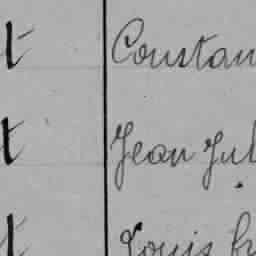 t Constan
t Jean Jul
t Louis fr